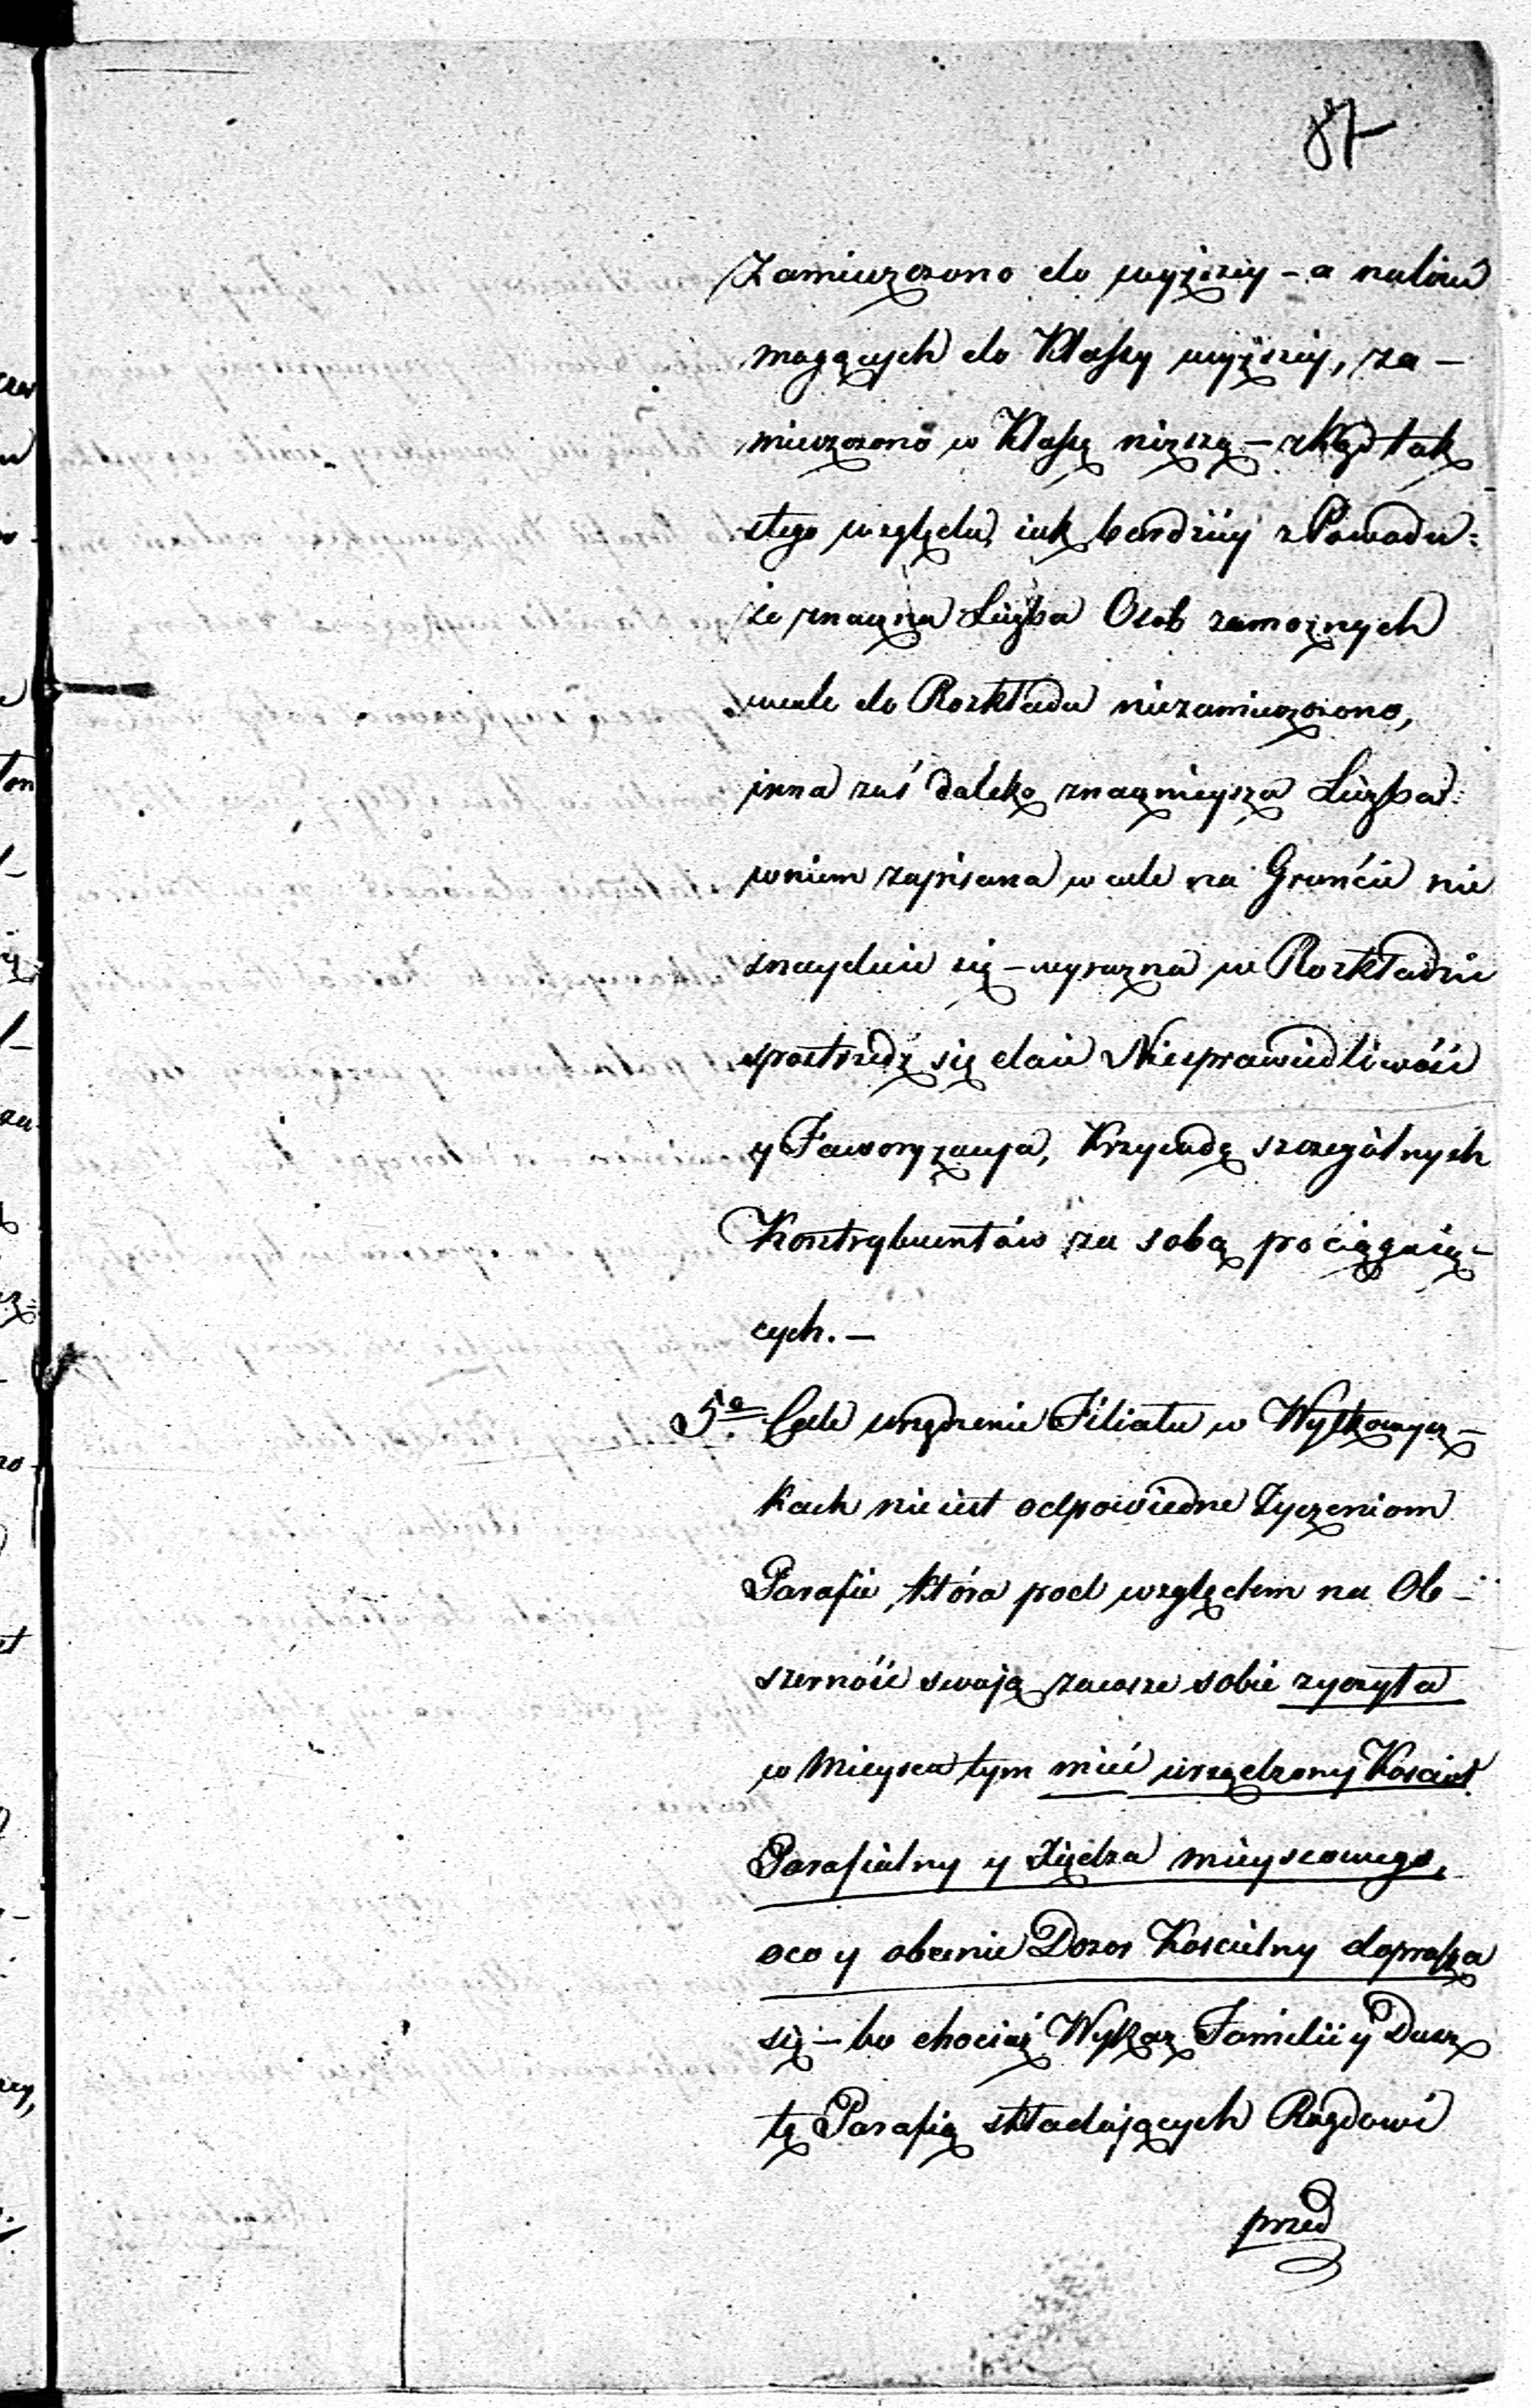 87
Zamieszczono do wyższey – a należeć
mogących do Klassy wyższey, za –
mieszczono w Klassę niższą – zkąd tak
ztego względu, iak bardziéy z Powodu:
że znaczna Liczba Osob zamożnych
wcale do Rozkładu niezamieszczono,
inna zaś daleko znacznieysza Liczba
wniem zapisana wcale na Gruńcie nie
znayduie się – wyrazna w Rozkładzie
spostrzedz się daie Niesprawiedliwość
y Faworyzacya, Krzywdę szczególnych
Kontrybuentów za sobą pociągaią-
cych. –
5e. Całe urządzenie Filiału w Wyłkowysz –
kach nie iest odpowiedne Życzeniom
Parafii, która pod względem na Ob –
szerność swoją zawsze sobie zyczyła
w Mieyscu tym mieć urządzony Kościoł
Parafialny y Xiędza mieyscowego,
oco y obecnie Dozor Kościelny doprasza
się – bo chociaż Wykaz Familii y Dusz
tę Parafię składających Rządowi
przed